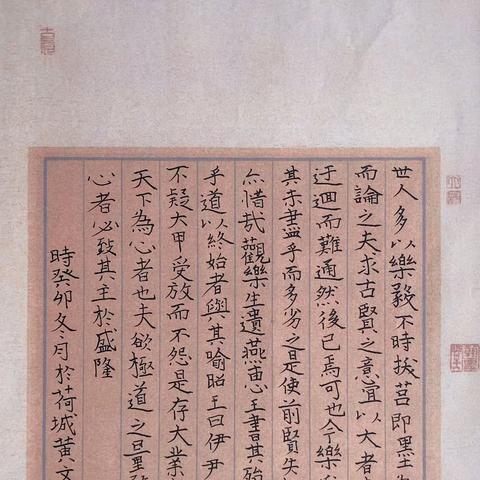 世人多以樂毅不時拔莒即墨
而論之夫求古賢之意宜以大者
迂迴而難通然後已焉可也今樂
其未盡乎而多劣之是使前賢失
亦惜哉觀樂生遺燕惠王書其殆
乎道以終始者與其喻昭王曰伊尹
不疑大甲受放而不怨是存大業
天下為心者也夫欲極道之
心者必致其主於盛隆
時癸卯冬月於荷城黃文